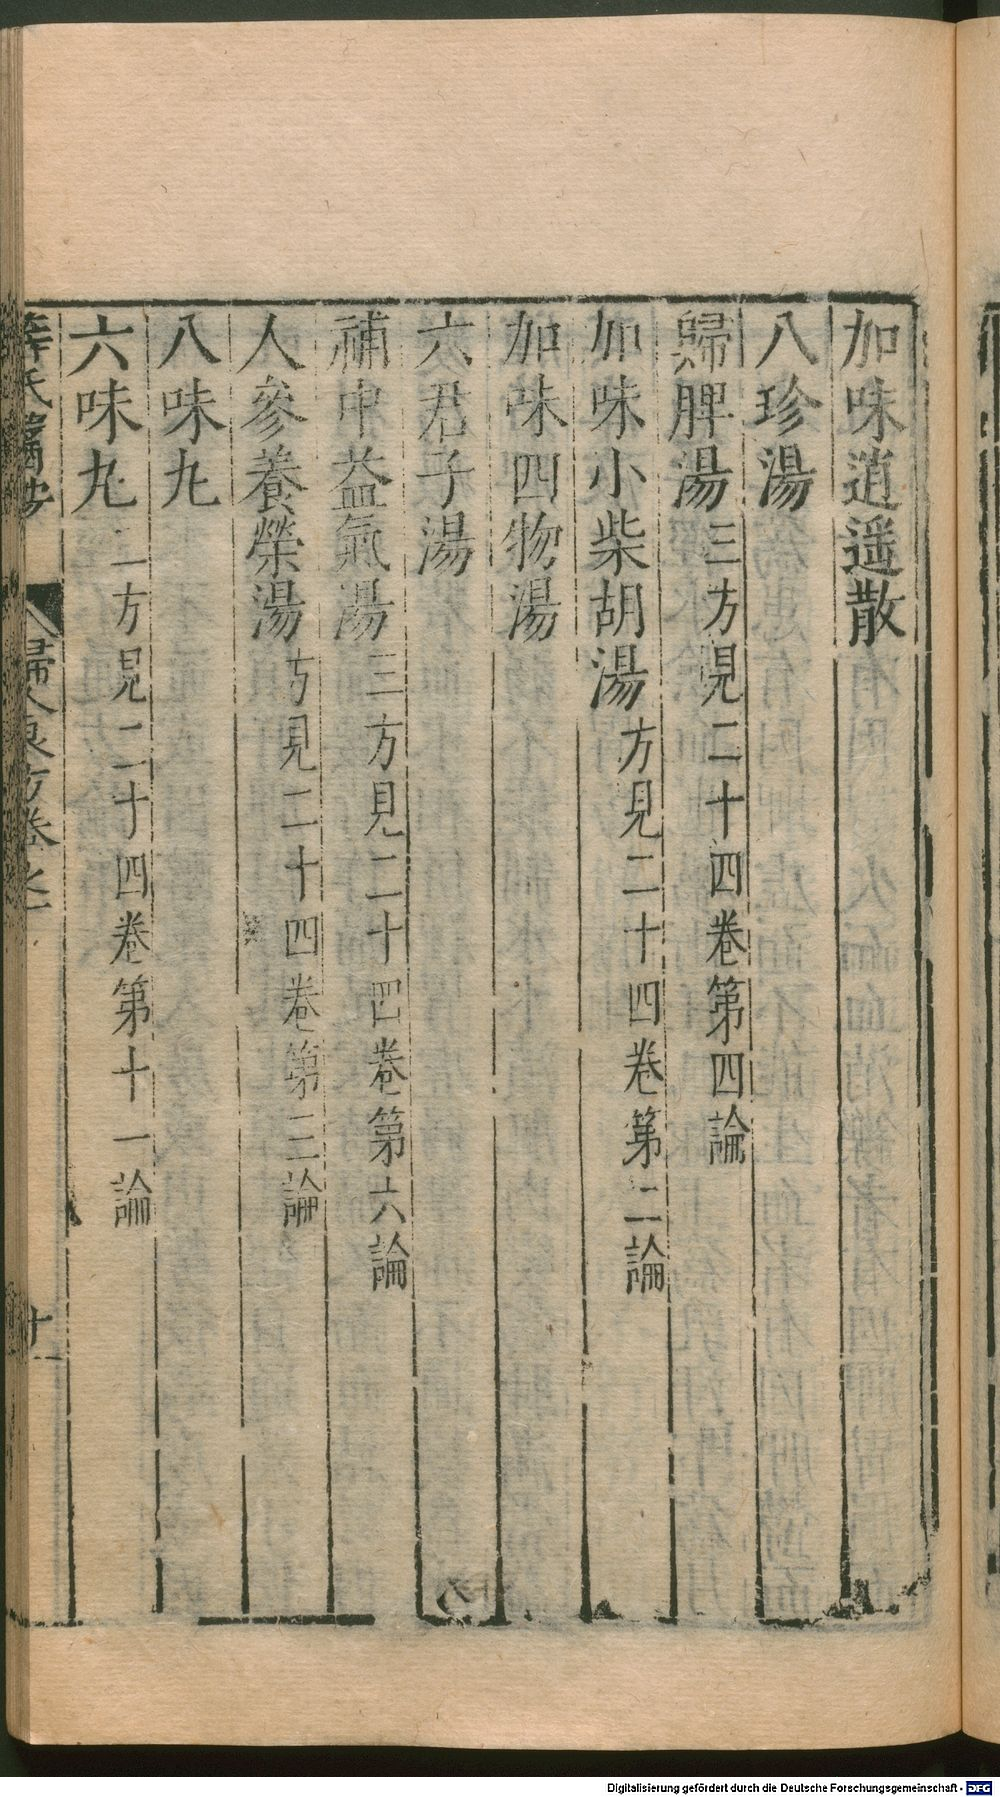 加味逍遥散
八珍湯
歸脾湯三方見二十四卷第四論
加味小柴胡湯方見二十四卷第二論
加味四物湯
六君子湯
補中益氣湯三方見二十四卷第六論
人參養榮湯方見二十四卷第三論
八味丸
六味丸二方見二十四卷第十一論
薛氏醫按
婦人良方卷之一
十
Digitalisierung gefördert durch die Deutsche Forschungsgemeinschaft - DFG